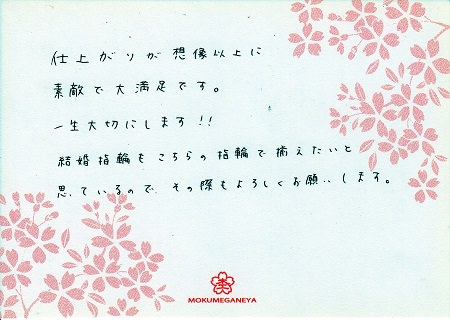 仕上がりが想像以上に
素敵で大満足です。
一生大切にします!!
結婚指輪もこちらの指輪で揃えたいと
思っているので、その際もよろしくお願いします。
MOKUMEGANEYA